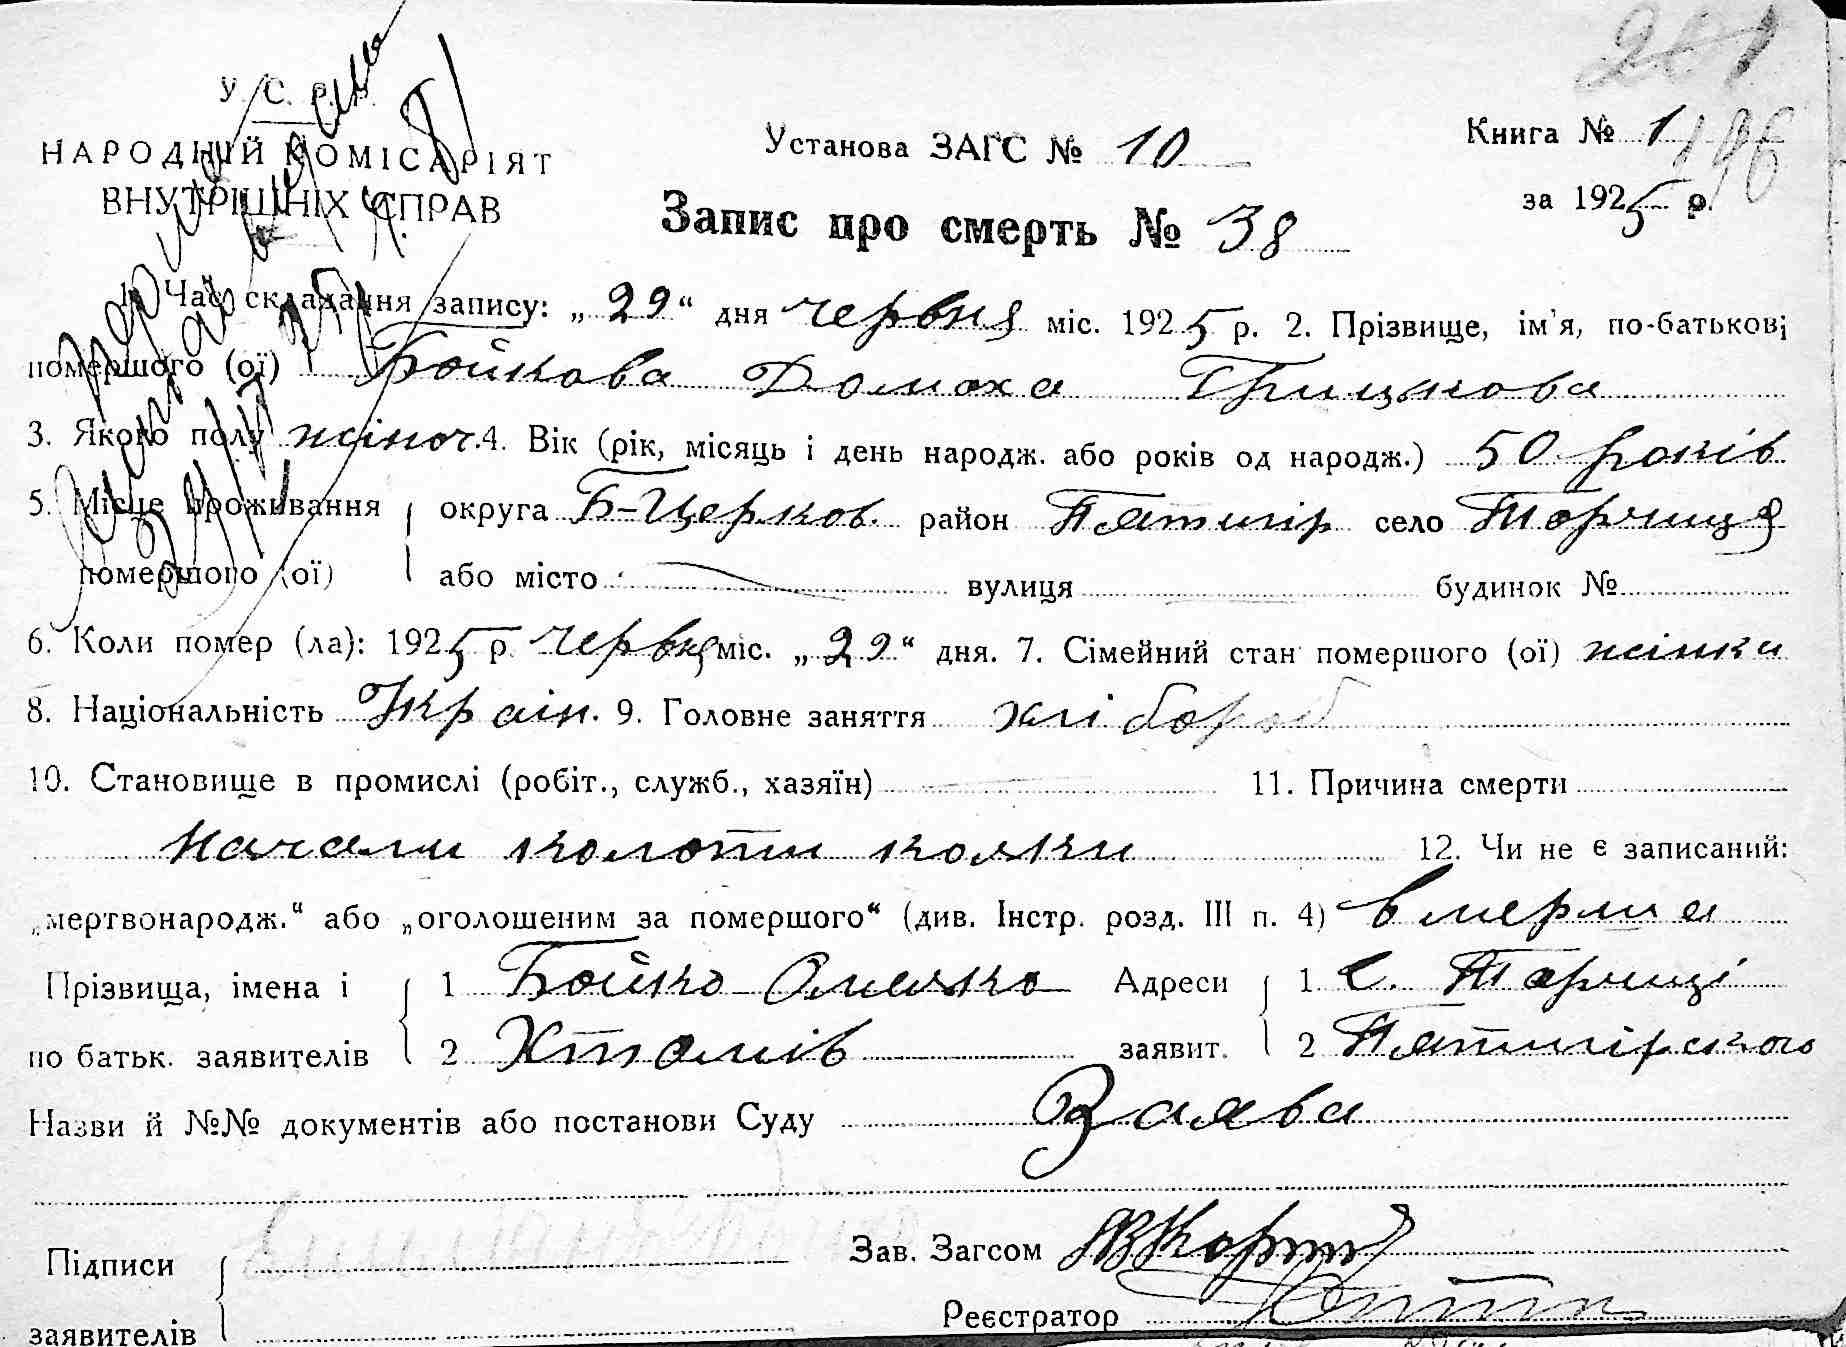 У. С. Р. Р.
НАРОДНІЙ КОМІСАРІЯТ
ВНУТРІШНІХ СПРАВ
Установа ЗАГС № 10
Книга № 1
196
за 1925 р.
Запис про смерть № 38
1. Час складання запису: „29“ дня червня міс. 1925 р. 2. Прізвище, ім'я, по-батькові
помершого (ої) Бойкова Домаха Грицкова
3. Якого полу жіноч. 4. Вік (рік, місяць і день народж. або років од народж.) 50 років
5. Місце проживання помершого (ої) округа Б-Церков. район Пятигір село Торчиця
або місто вулиця будинок №
6. Коли помер (ла): 1925 р. червня міс. „29“ дня. 7. Сімейний стан помершого (ої) жінка
8. Національність Украін. 9. Головне заняття хлібороб
10. Становище в промислі (робіт., служб., хазяїн) 11. Причина смерти
Начали колоти колки 12. Чи не є записаний:
„мертвонародж.“ або „оголошеним за помершого“ (див. Інстр. розд. III п. 4) вмерла
Прізвища, імена і 1 Бойко Омелько Адреси 1 С. Торчиці
по батьк. заявителів 2 заявит. 2 Пятигірського
Назви й №№ документів або постанови Суду Заява
Підписи
Зав. Загсом
Реєстратор
заявителів